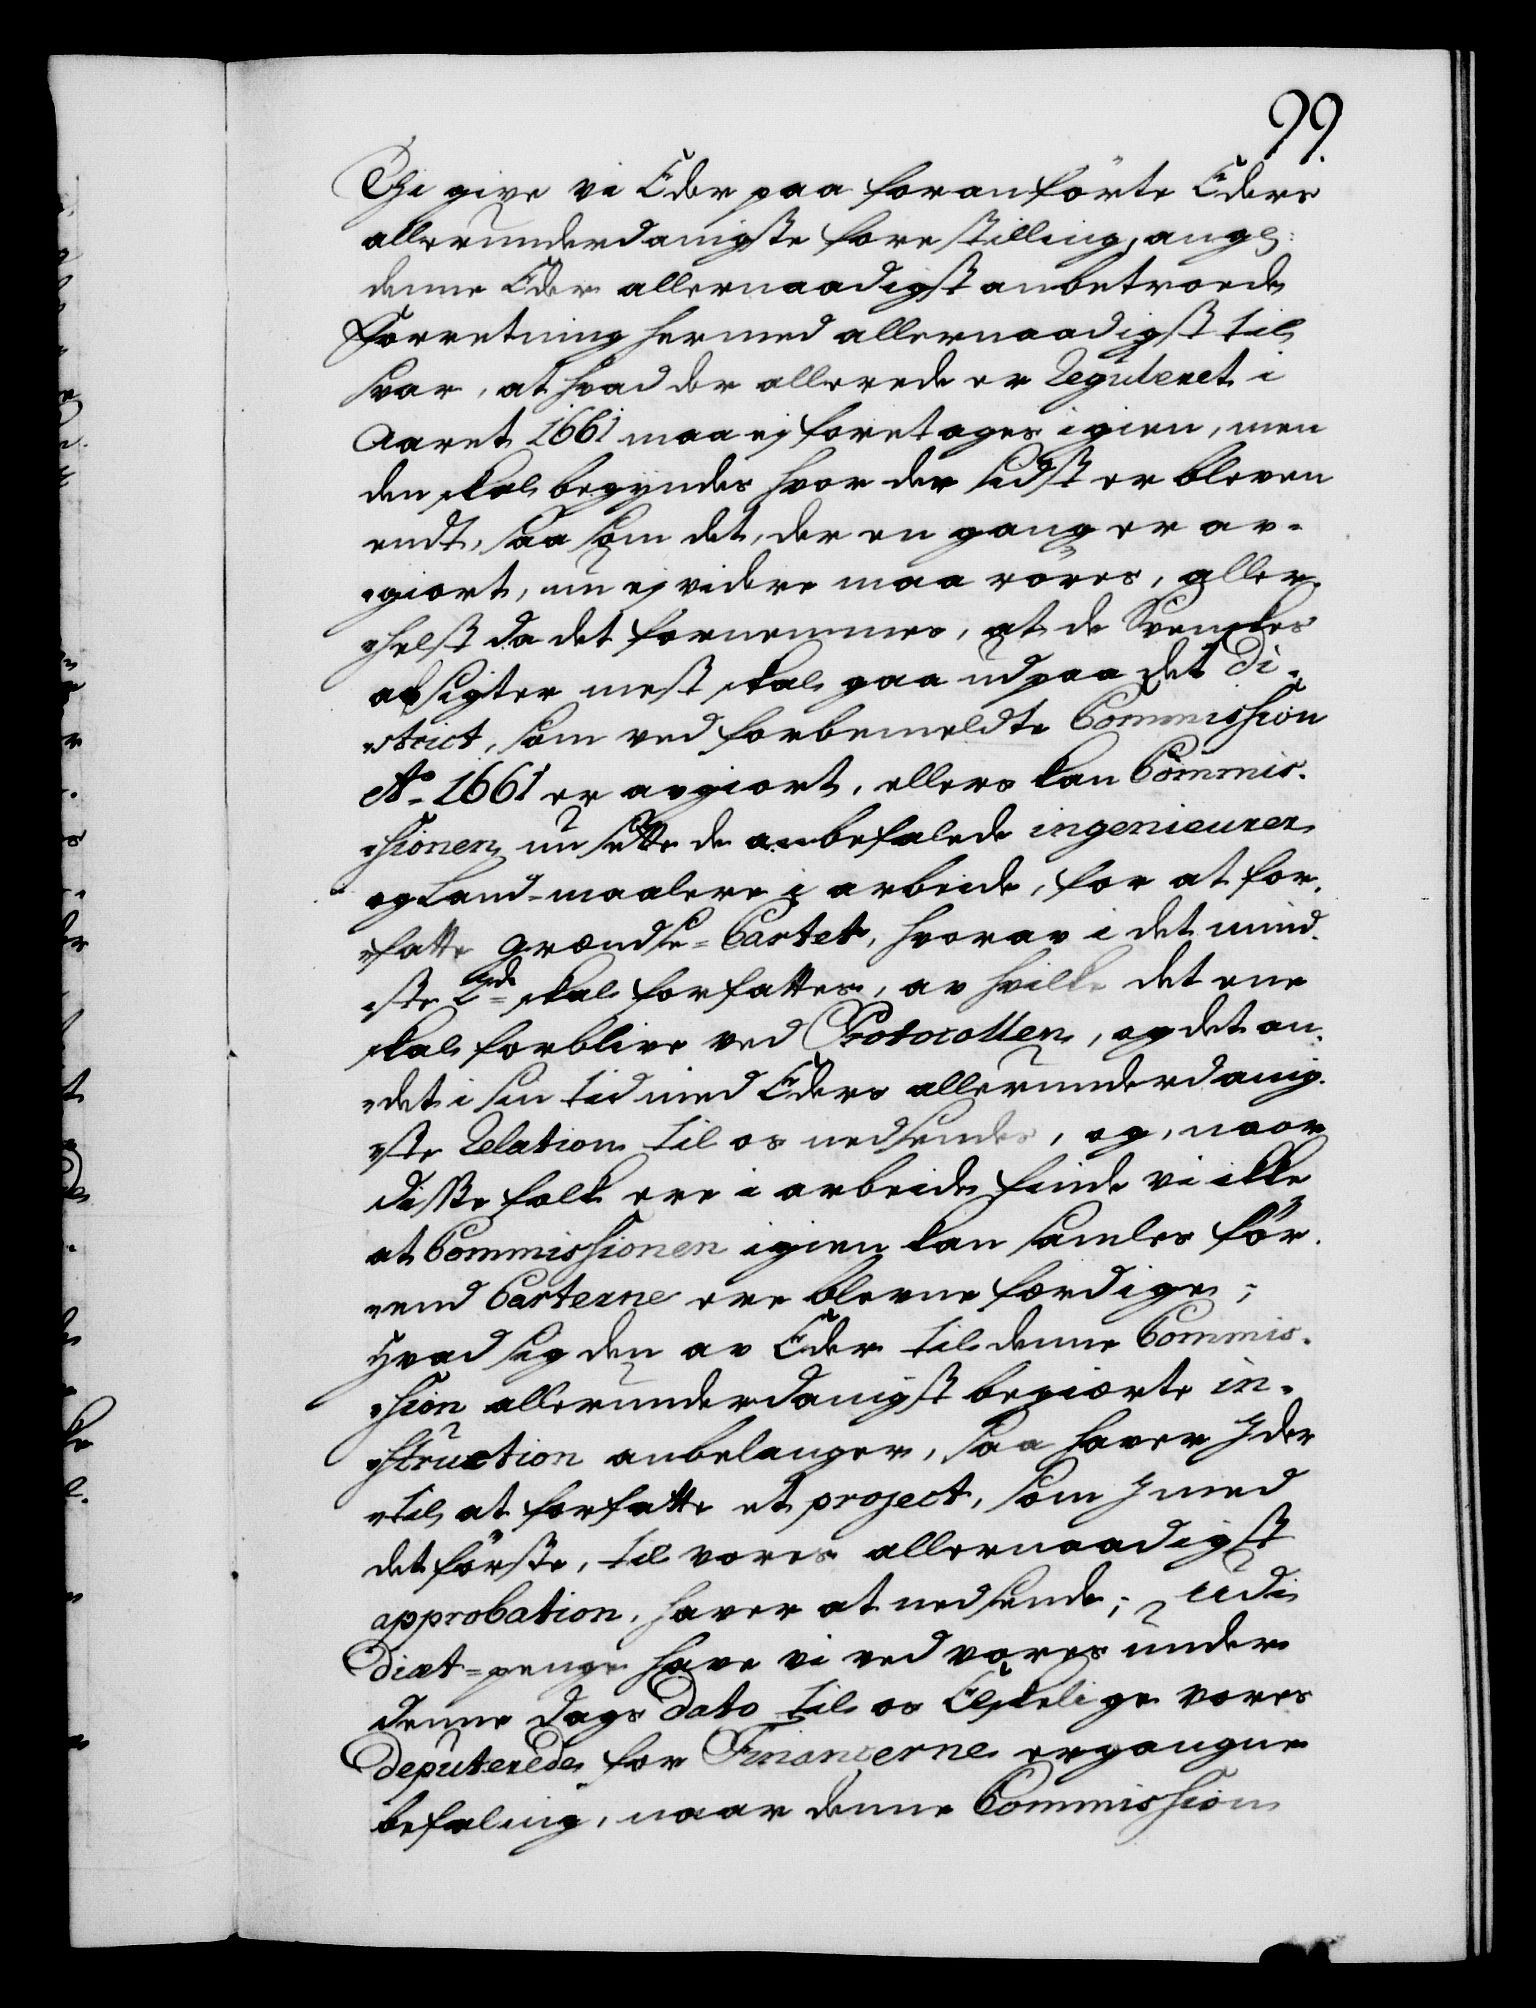 99.
Thi give vi Eder paa foranförte Eders
allerunderdanigste forestilling, ang:
denne Eder allernaadigst anbetroede
Forretning hermed allernaadigst til
svar, at hvad der allerede er Reguleret i
Aaret 1661 maa ej foretages igien, men
den skal begyndes hvor der sidst er bleven
endt, saa som det, der en gang er av-
„giort, nu ej videre maa röres, aller-
„helst da det fornemmes, at de Svenskes
absigter mest skal gaa ud paa det Di-
„strict, som ved forbemeldte Commission
Ao. 1661 er avgiort, ellers kan Commis-
„sionen nu sette de anbefalede ingenieurer
og Land-maalere i arbeide, for at for-
„fatte grændse-Cartet, hvorav i det mind-
„ste 2de skal forfattes, av hvilke det ene
skal forblive ved Protocollen, og det an-
„det i sin tid med Eders allerunderdanig-
„ste Relation til os nedsendes, og, naar
disse folk ere i arbeide finde vi ikke
at Commissionen igien kan samles för-
„end Carterne ere blevne færdige;
Hvad sig den av Eder til denne Commis-
„sion allerunderdanigst begiærte in-
„struction anbelanger, saa haver I der
„til at forfatte et project, som I med
det förste, til vores allernaadigst
approbation, haver at nedsende; Udi
Diæt-penge have vi ved vores under
denne Dags Dato til os Elskelige vores
Deputerede for Financerne ergangne
befaling, naar denne Commission